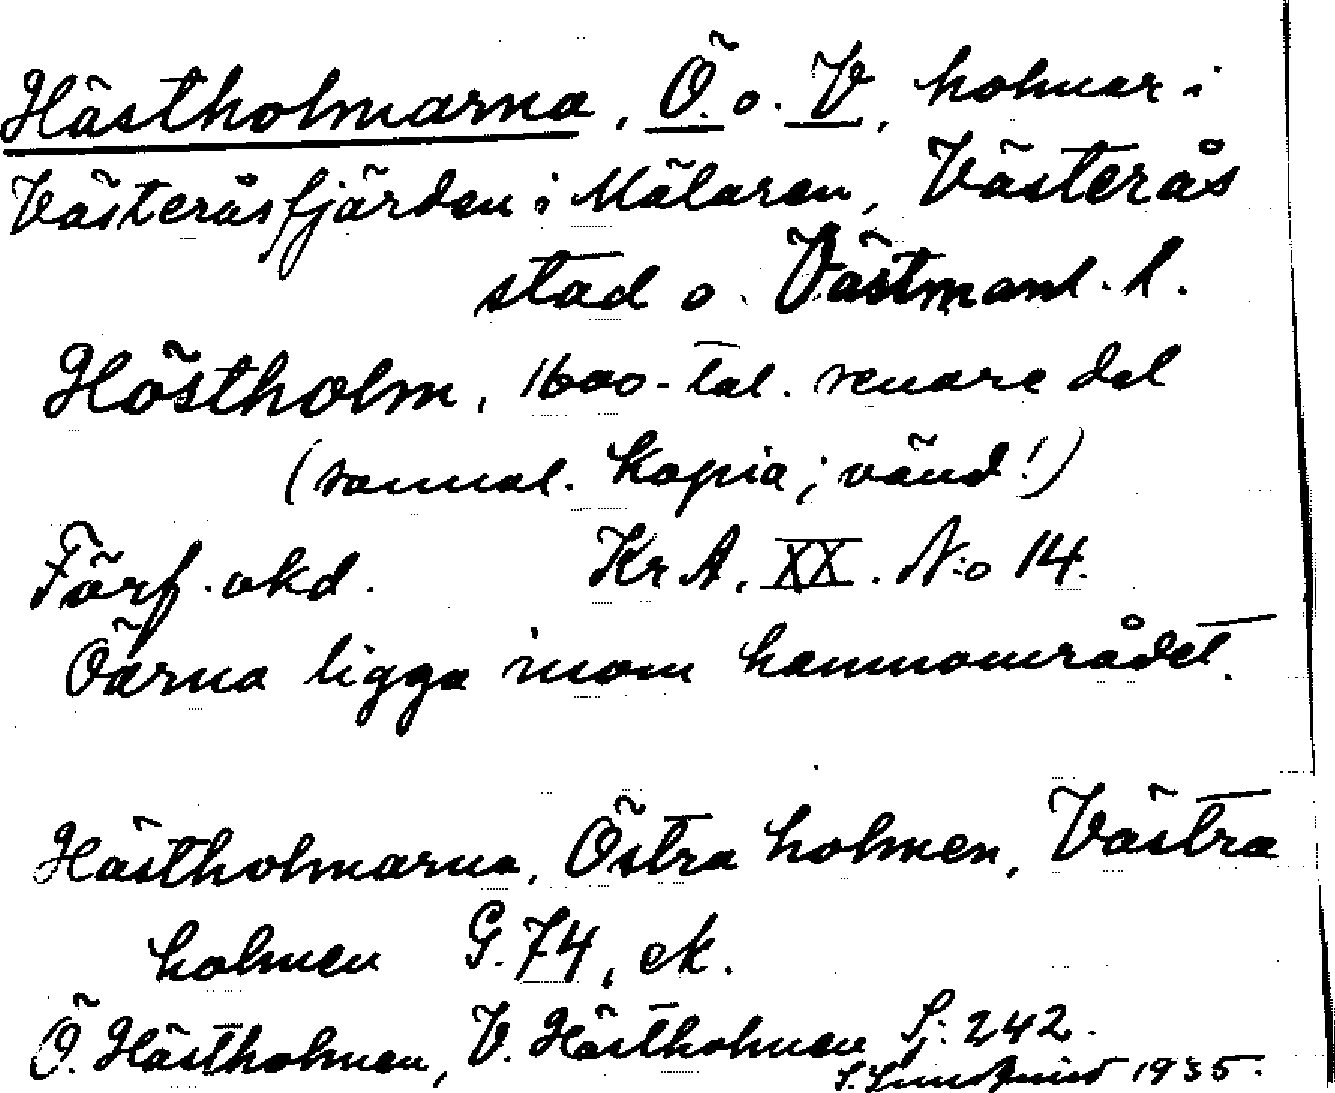 Hästholmarna, Ö. o. V., holmar i
Västeråsfjärden i Mälaren, Västerås
stad o. Västmanl. l.
Höstholm, 1600-tal. senare del
(samal. kopia; vänd!)
Förf. okd. Kr A. XX. N:o 14.
Öarna ligga inom hamnområdet.
Hästholmarna, Östra holmen, Västra
holmen G. 74, ek.
Ö. Hästholmen, V. Hästholmen Sj. 242.
S. Lundqvist 1935.